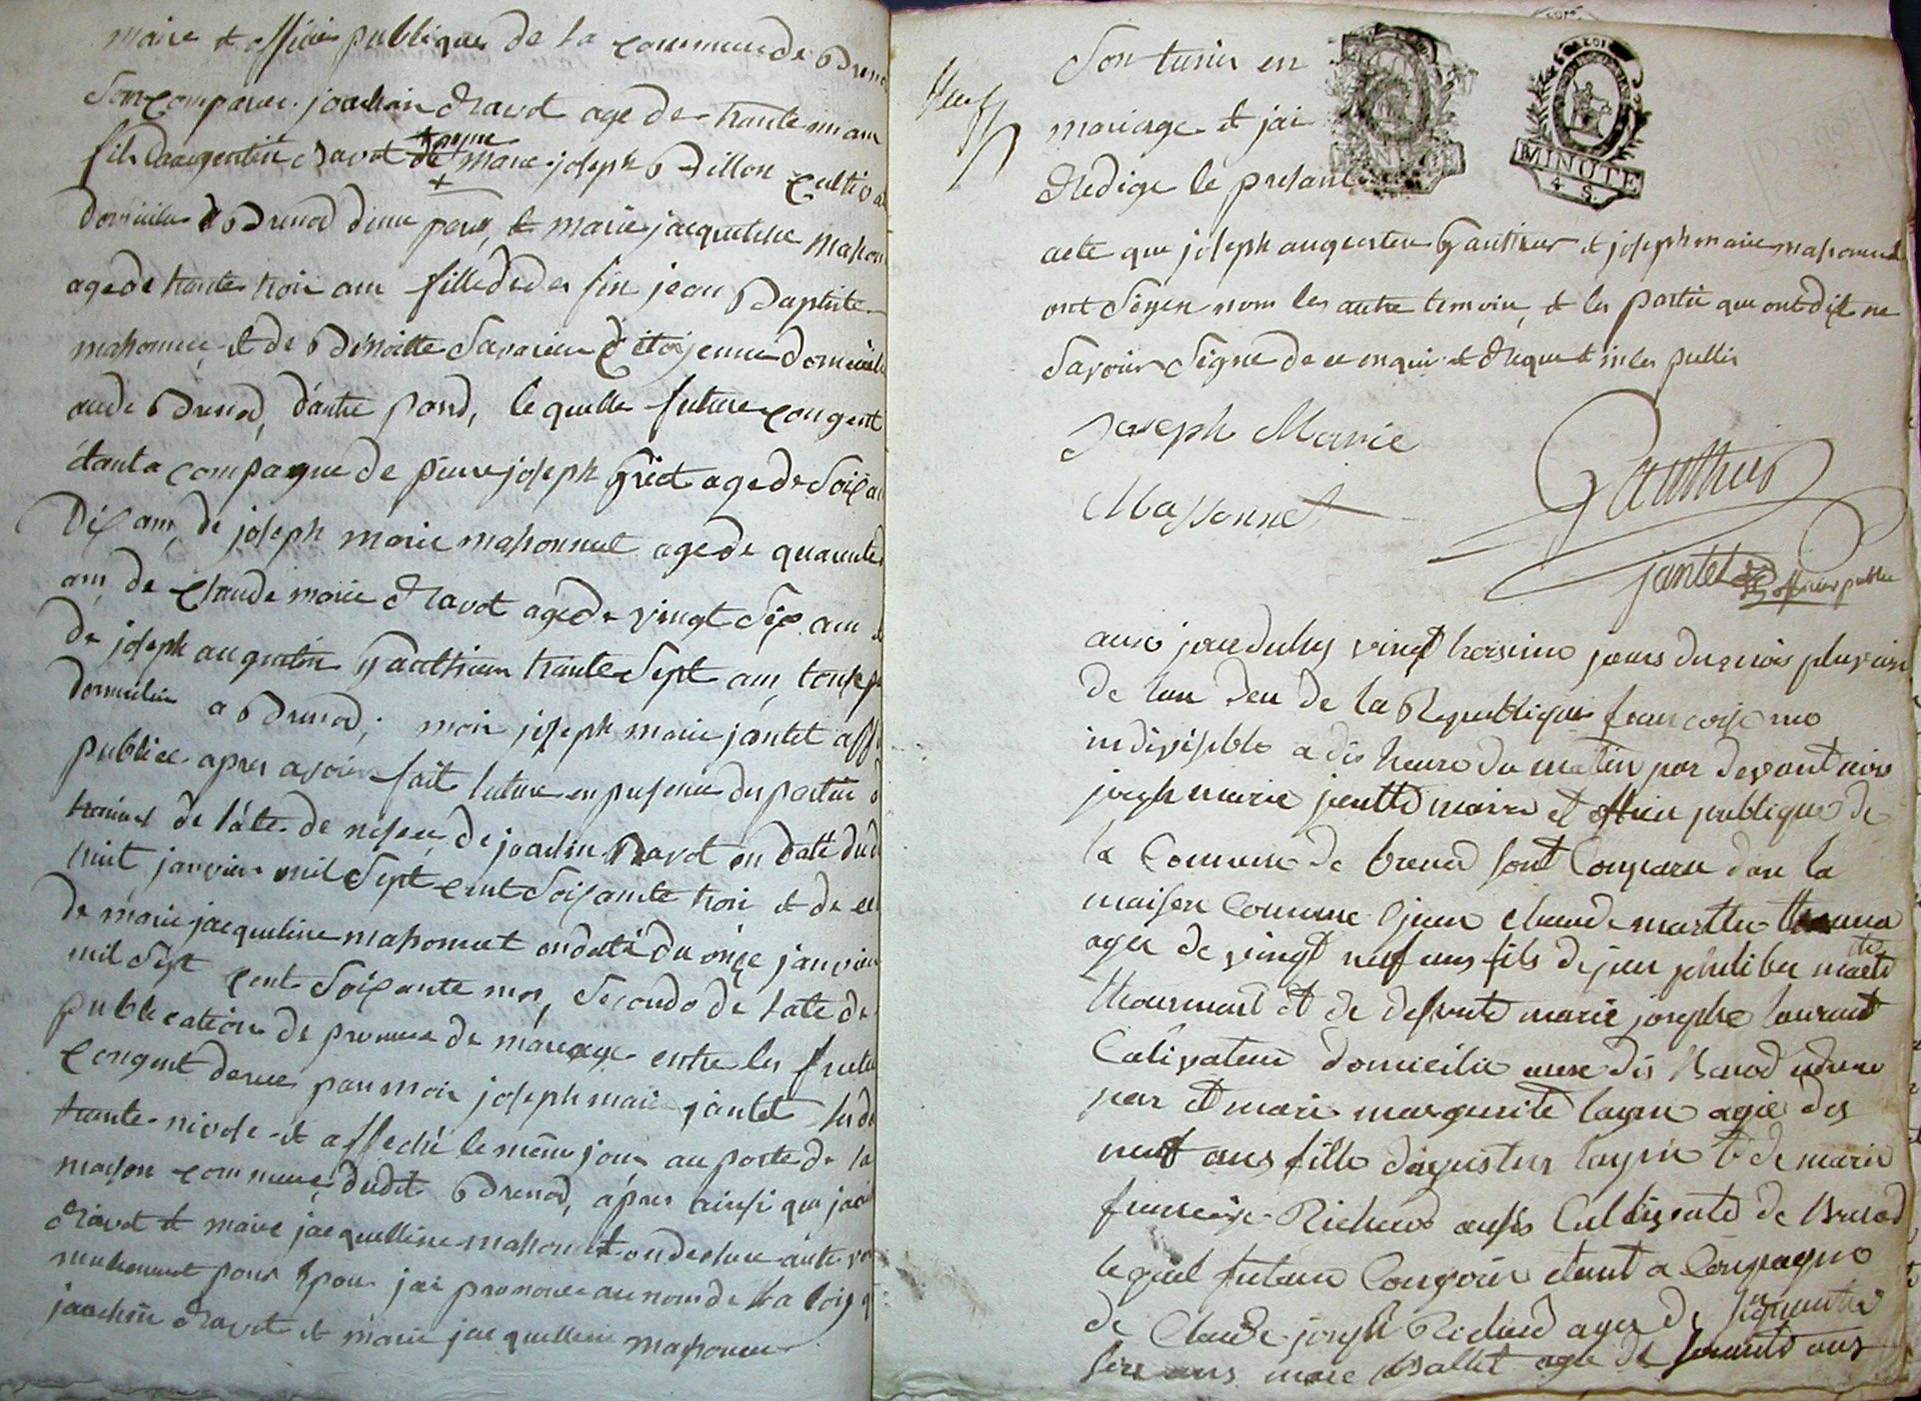 maire et officier publique de la commune de Breno
Son comparue joachin Ravot age de trante un an
fils daugentin Ravot de marie joseph Billon Cultiva
domicilier a Brenod dune part, et marie jacqueline mason
agede trante trois ans fille de defin jean Baptiste
masonnet et de Benoitte Savarin Citoyenne domicile
audi Brenod, dautre pard, le quelle future congent
étant a compagne de pierre joseph Griot age de Soixan
Dix ans, de joseph marie masonnet agede quarante
ans, de Claude marie Ravot agede vingt Six ans
de joseph augustin Gauthier trante Sept ans, tous
domicilier a Brenod; moi joseph marie jantet offi
publice apres avoir fait luture en presence des partie
temoins de late de nesance de joachin Ravot en date du
huit janvier mil Sept cent Soixante trois et de ce
de marie jacqueline masonnet en date du onze janvier
mil Sept cent Soixante mos, Secondo de late de
publication de promese de mariage entre les futur
congent dresse par moi joseph marie jantet ludi
trante nivose et affeche le meme jour au porte de la
maison commune dudit Brenod, apres ainsi que joac
Ravot et marie jacquelline masonnet on declare aute voi
mutuement pour Epou jai prononce au nom de la loix q
joachin Ravot et marie jacquelline masonnet
Son tunir en
mariage et jai
Redige le presant
MINUTE
4 S.
acte que joseph augustin Gauthier et joseph marie masonnet
ont Signer nom les autre temoin, et les partie que ont dit ne
Savoir Signe de ce enquir et Requet inter pellis
Joseph Marie
Massonnet
Gauthier
jantet officier public
aujo jourduhuy vingt troisime jours du mois pluviose
de lan deu de la Republique francoise uno
indivisible a dis heure du matin par devant moi
joseph marie jantte maire et officie publique de
la Comune de brenod sont Comparu dan la
maison Comune jean claude martte
ages de vingt neuf ans fils de jean philiber martte
et de defunte marie josephe laurant
Cultivateur domicilie audis Brenod dune
par et marie marguerite layin agée dis
neuf ans fille dagustin layin et de marie
francoise Richerod aussi Cultivate de Brenod
lequel future Conjoin etant a Conpagno
de Claude joseph Richerod ages de sinquante
ans marc Ballet age de souante ans